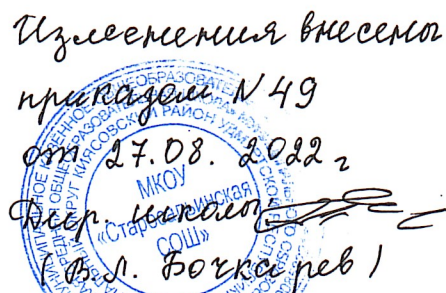 Изменения внесены
приказом N 49
от 27.08. 2022 г
Дир. школы
(В.Л. Бочкарев)
МКОУ
СОШ»